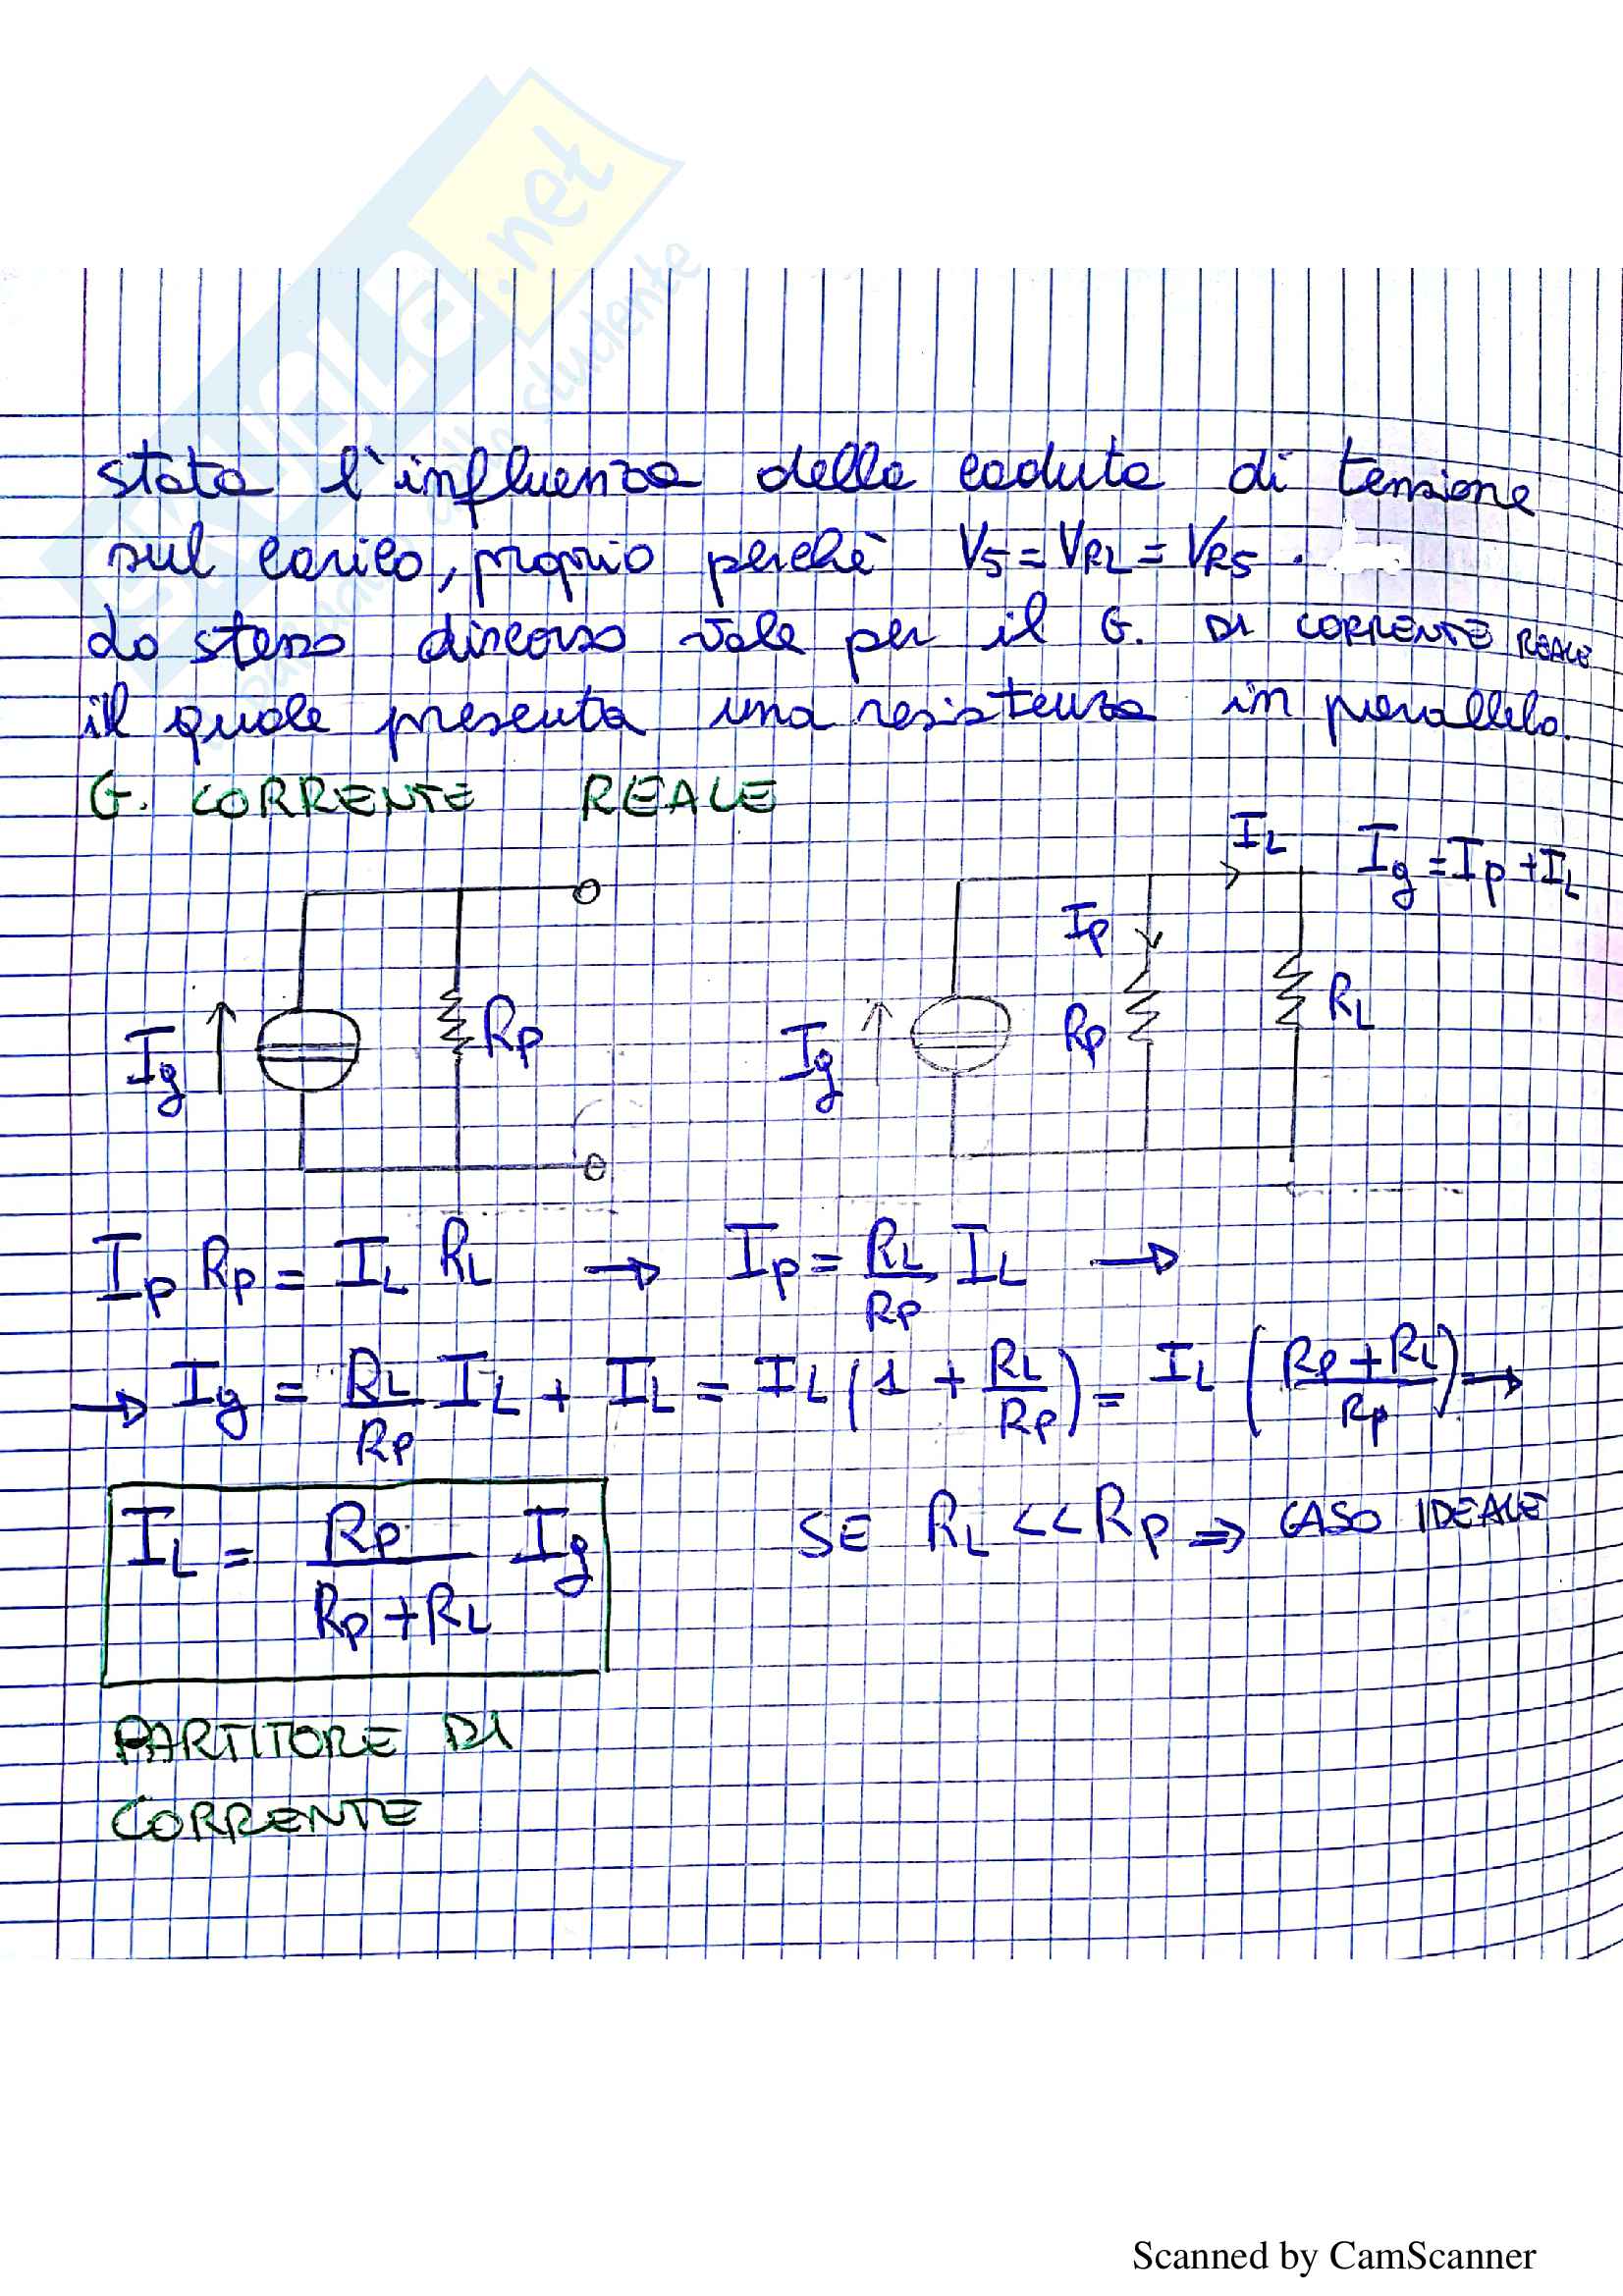 SKUOLA.net
stata l'influenza della caduta di tensione
sul carico, proprio perchè VS = VRL = VRS.
Lo stesso discorso vale per il G. DI CORRENTE REALE
il quale presenta una resistenza in parallelo.
G. CORRENTE REALE
IL Ig = Ip + IL
Ip
Ig Rp Ig Rp RL
Ip Rp = IL RL → Ip = RL/Rp IL →
→ Ig = RL/Rp IL + IL = IL (1 + RL/Rp) = IL (Rp + RL/Rp) →
IL = Rp/Rp + RL Ig SE RL << Rp ⇒ CASO IDEALE
PARTITORE DI
CORRENTE
Scanned by CamScanner